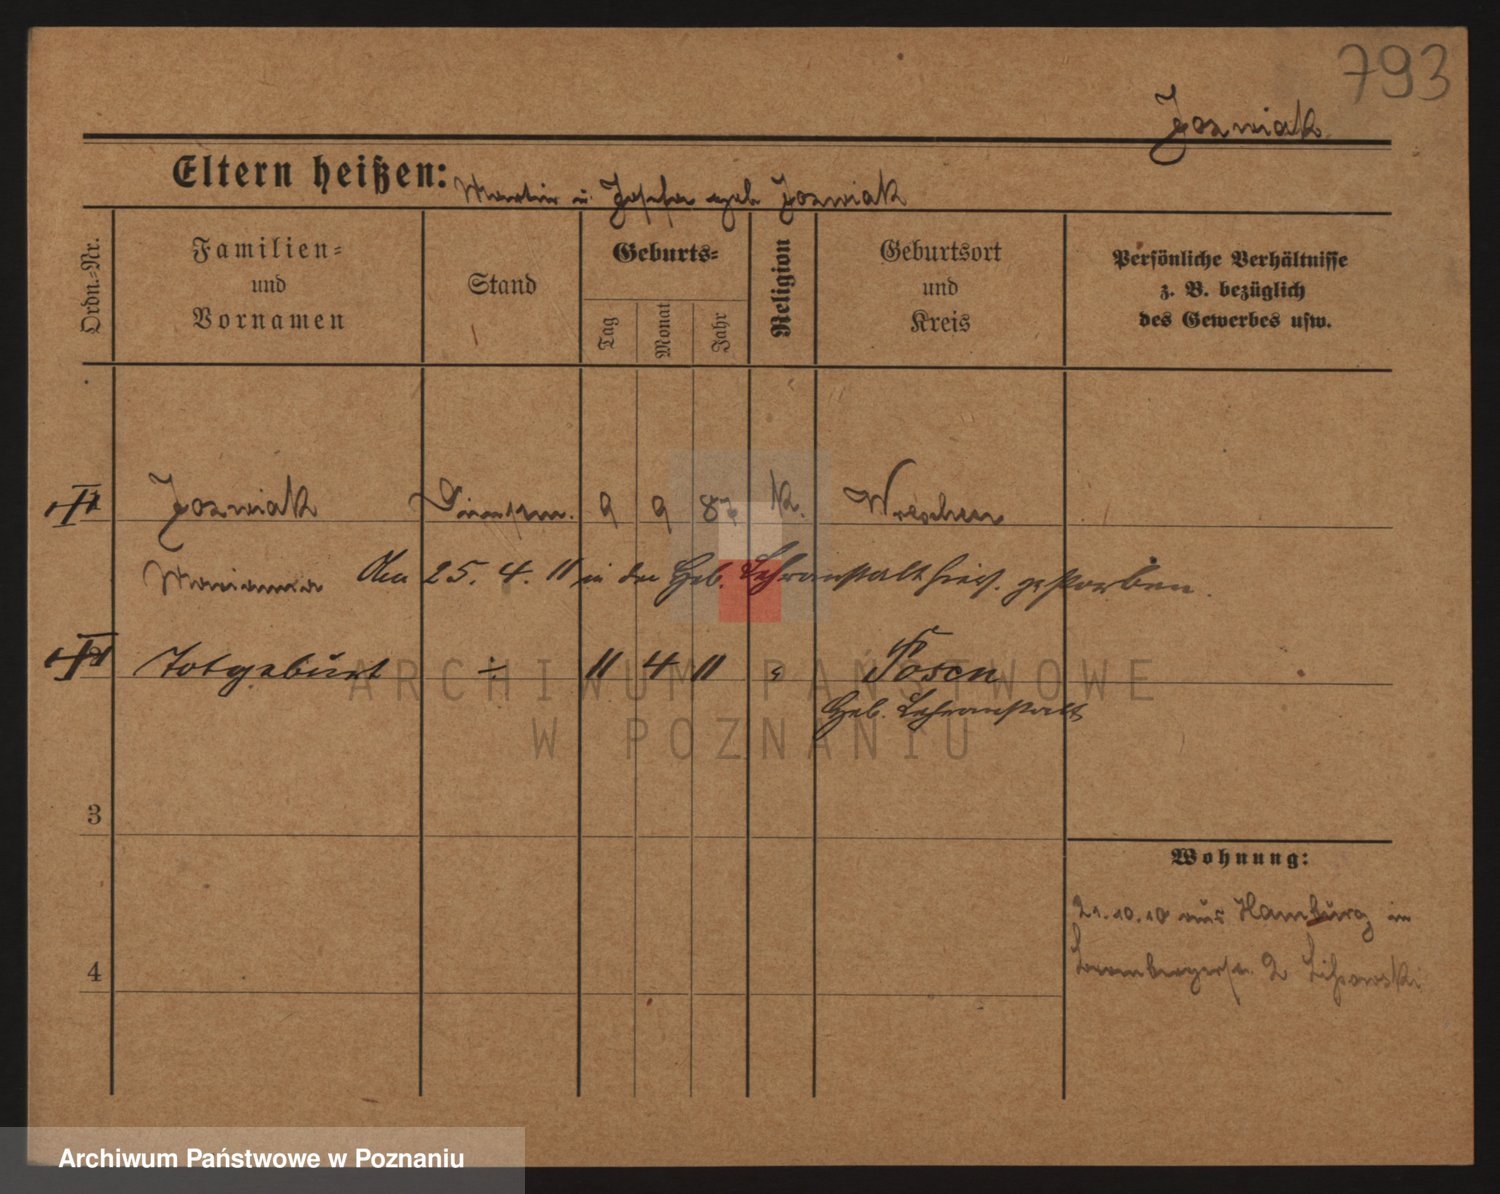 793
Jozwiak
Eltern heißen: Martin u. Josefa geb Jozwiak
Ordn.-Nr.
Familien- und Vornamen
Stand
Geburts-
Tag
Monat
Jahr
Religion
Geburtsort und Kreis
Persönliche Verhältnisse
z. B. bezüglich
des Gewerbes usw.
Jozwiak 9 9 87 K. Wreschen
Marianna Am 25. 4. 11 in der Heb. Lehranstalt hies. gestorben.
Totgeburt ÷ 11 4 11 " Posen
Heb. Lehranstalt
ARCHIWUM PAŃSTWOWE
W POZNANIU
3
Wohnung:
21.10.10 aus Hamburg in
4
2
Archiwum Państwowe w Poznaniu